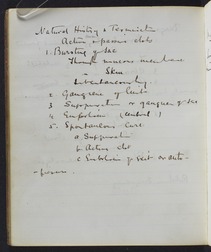 Natural History & Termination
Active & passive clots
1. Bursting of sac
Through mucous membrane
" Skin
Subcutaneously
2 Gangrene of limb
3 Suppuration or gangrene of sac
4 Embolism (cerebral)
5. Spontaneous Cure
a. Suppuration
b. Active clot
c. Embolism of